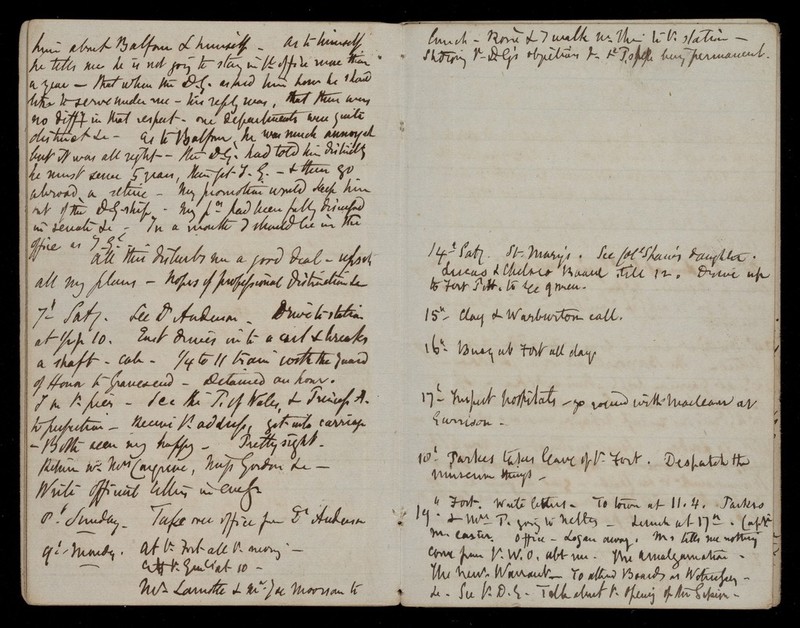 him about Balfour & himself - As to himself
he tells me he is not going to stay in the office more than
a year - that when the D.G. asked him how he should
like to serve under me - his reply was, that there was
no diff^y in that respect - our departments were quite
distinct &c - As to Balfour, he was much annoyed
but it was all right - the D.G. had told him distinctly
he must serve 5 years, then get I.G. - & then go
abroad or retire - My promotion would keep him
out of the D.G.ship. - My p^n had been fully discussed
in senate &c - In a month I should be in the
office as I.G.
All this disturbs me a good deal - upsets
all my plans - hopes of professional distinction &c
7^th Sat^y. See D^r Anderson. Drive to station
at ½ p 10. East drives into a cart & breaks
a shaft - cab - ¼ to 11 train with the guard
of Honor to Gravesend - Detained an hour.
I on V. pier - See the P. of Wales, & Princess A.
to perfection - Receive V. address, get into carriage
- Both seem very happy - Pretty sight.
Return w^h M^rs Congreve, Miss Gordon &c -
Write official letters in even^g
8^th Sunday. Take over office from D^r Anderson
9^th Monday. At V. Fort all V. morn^g -
at 10 -
M^rs Lamotte & M^r Joe Morrison to
lunch - Rose & I walk w^h them to V. station -
V. D.G's objections to being permanent.
14^th Sat^y. St. Mary's. See Col^l Shaw's daughter.
Lucas & Chelsea Board till 12. Drive up
to Fort Pitt. to see 9 men.
15^th Clay & Warburton call.
16^th Busy at Fort all day.
17^th Inspect hospitals - go round with Maclean at
Garrison -
18^th Parkes takes leave of V. Fort. Despatch the
museum things -
19^th Fort. Write letters - To town at 11.4. Parkes
& M^rs P. going to Netley - Lunch at 17^th. Cap^tn
Office - Logan away. M. tells me nothing
come from V. W.O. abt me. The amalgamation -
The new Warrant - To attend Boards at Woolwich -
&c - See V. D.G. - Talk about V. opening of the Session -